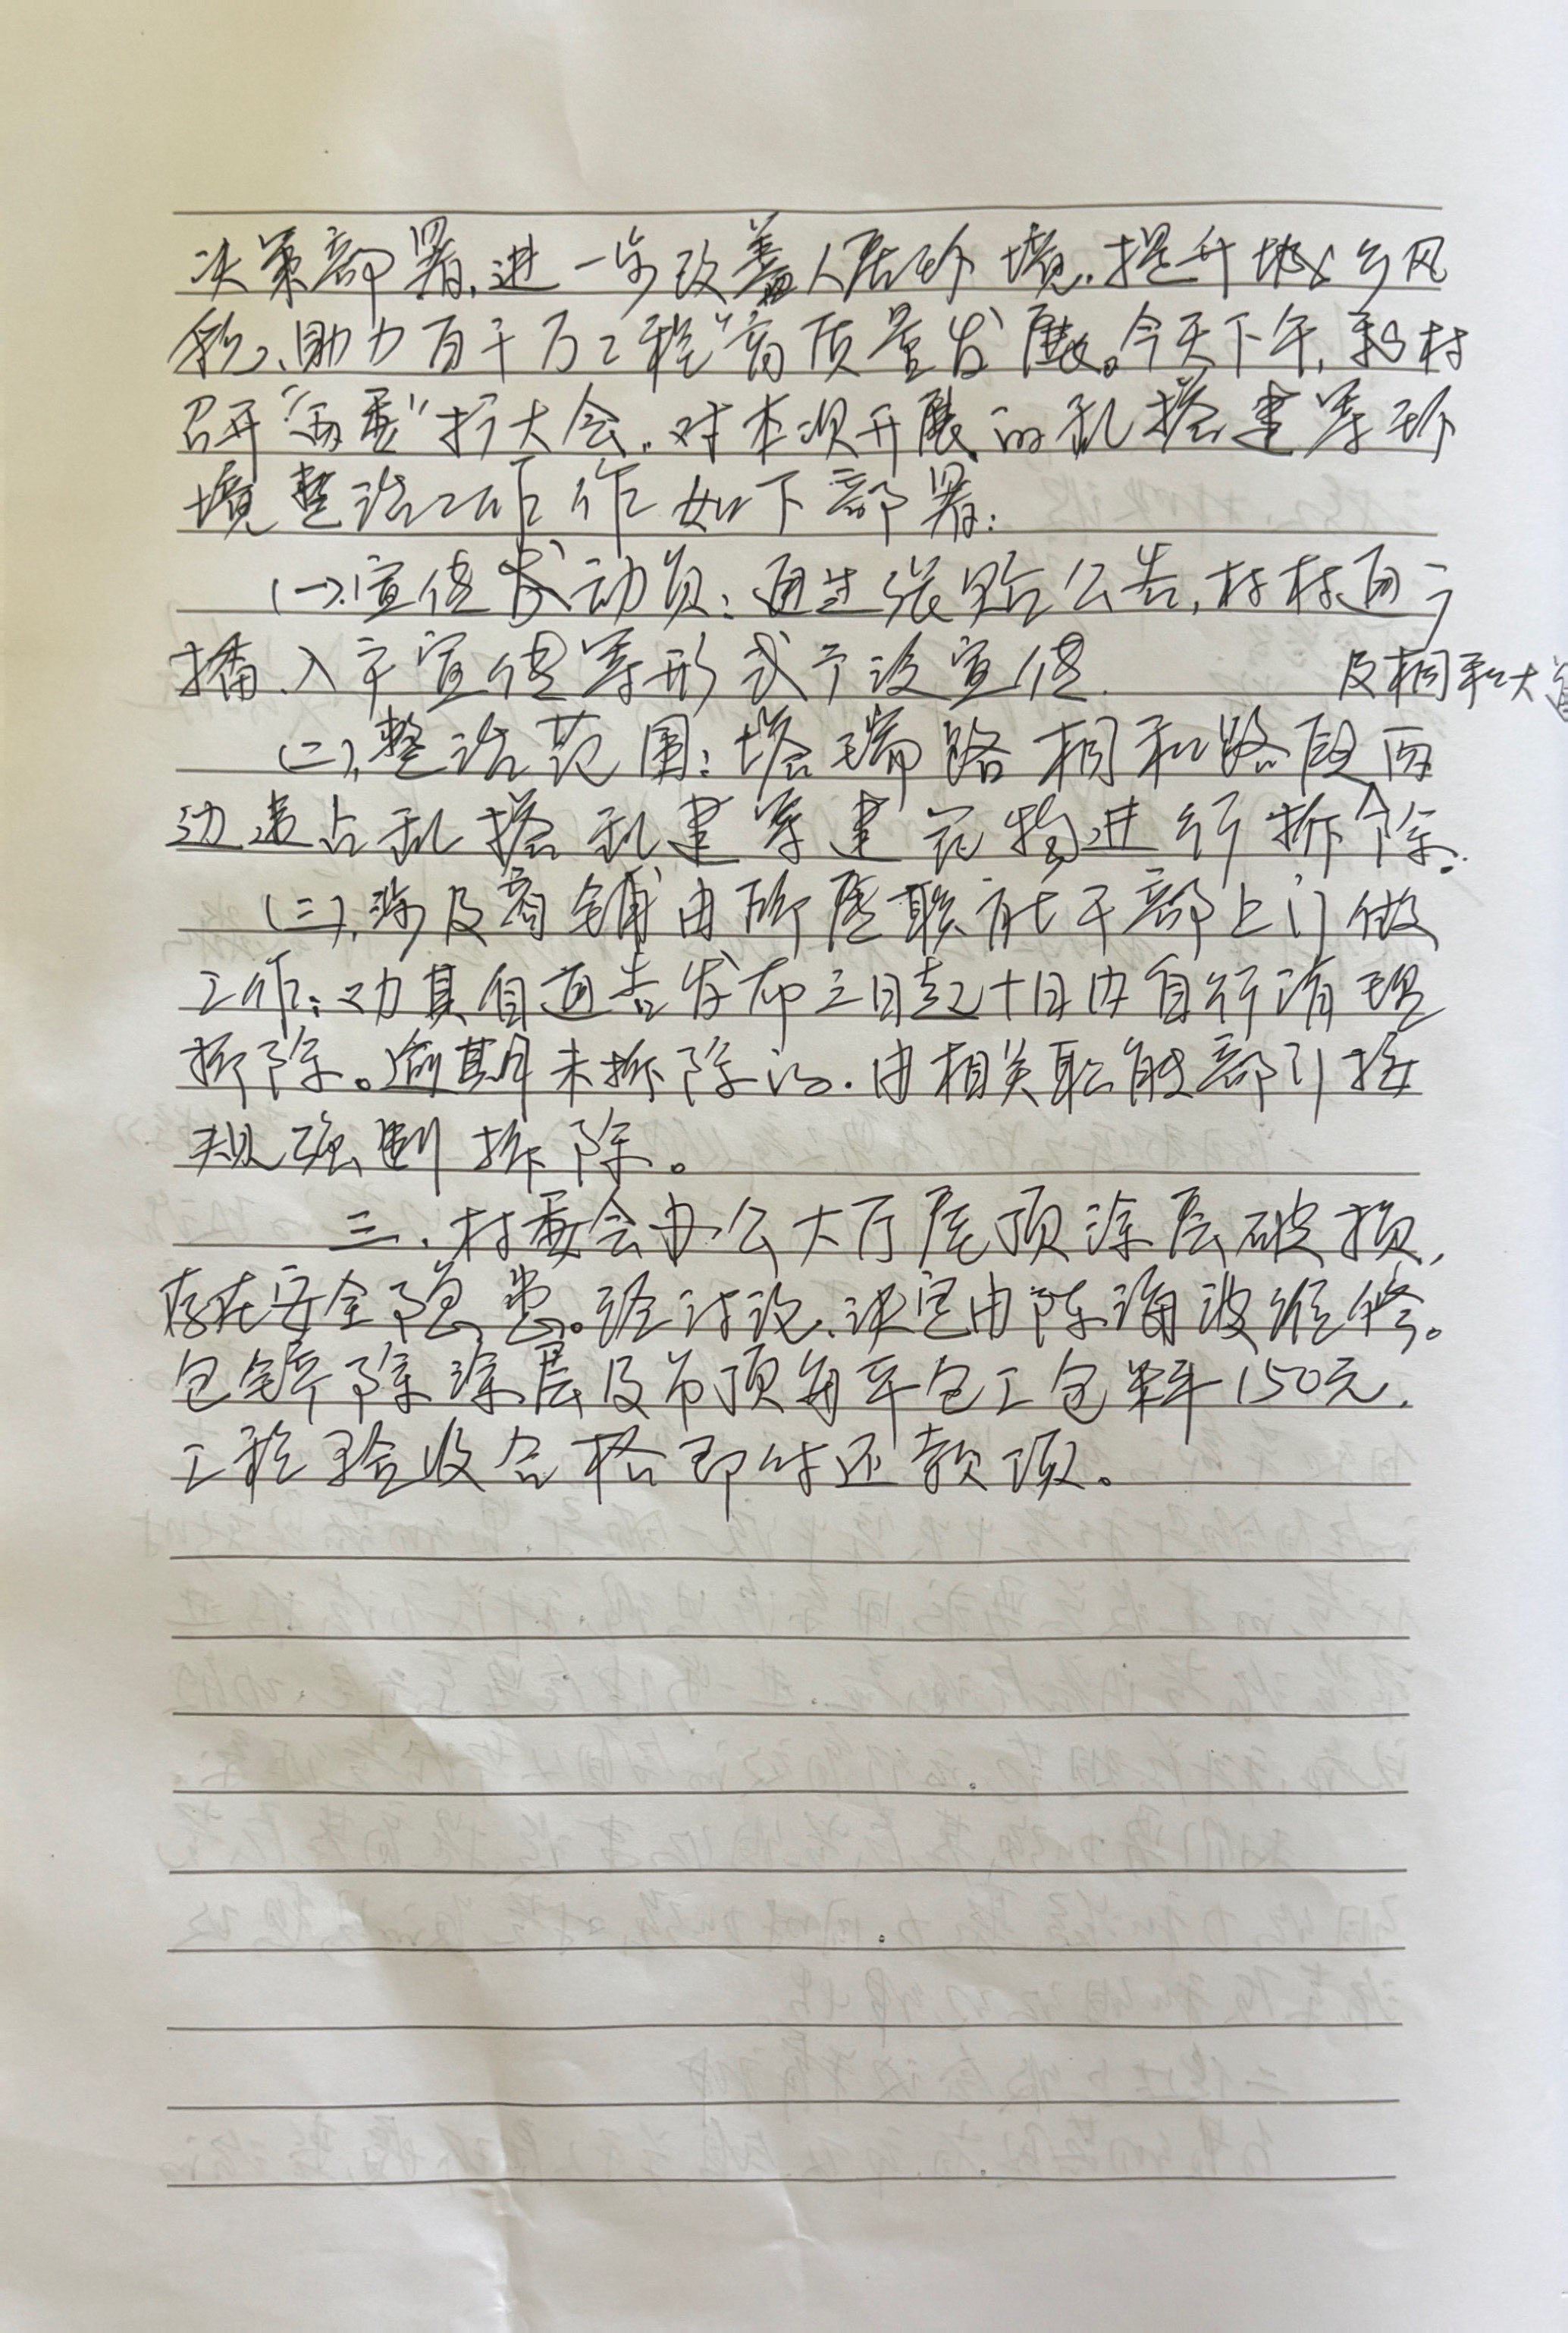 决策部署,进一步改善人居环境.提升城乡风
貌、助力百千万工程"高质量发展。今天下午,我村
召开"两委"扩大会.对本次开展的乱搭建等环
境整治工作作如下部署:
(一).宣传发动员:通过张贴公告,村村通广
播、入户宣传等形式予以宣传.
及桐和大道
(二).整治范围:塔瑞路桐和路段两
边违占乱搭乱建等建筑物进行拆除.
(三).涉及商铺由所属联片干部上门做
工作:劝其自通告发布之日起十日内自行清理
拆除。逾期未拆除的.由相关职能部门按
规强制拆除。
三、村委会办公大厅屋顶涂层破损,
存在安全隐患。经讨论.决定由陈海波维修。
包铲除涂层及吊顶每平包工包料150元.
工程验收合格即付还款项。